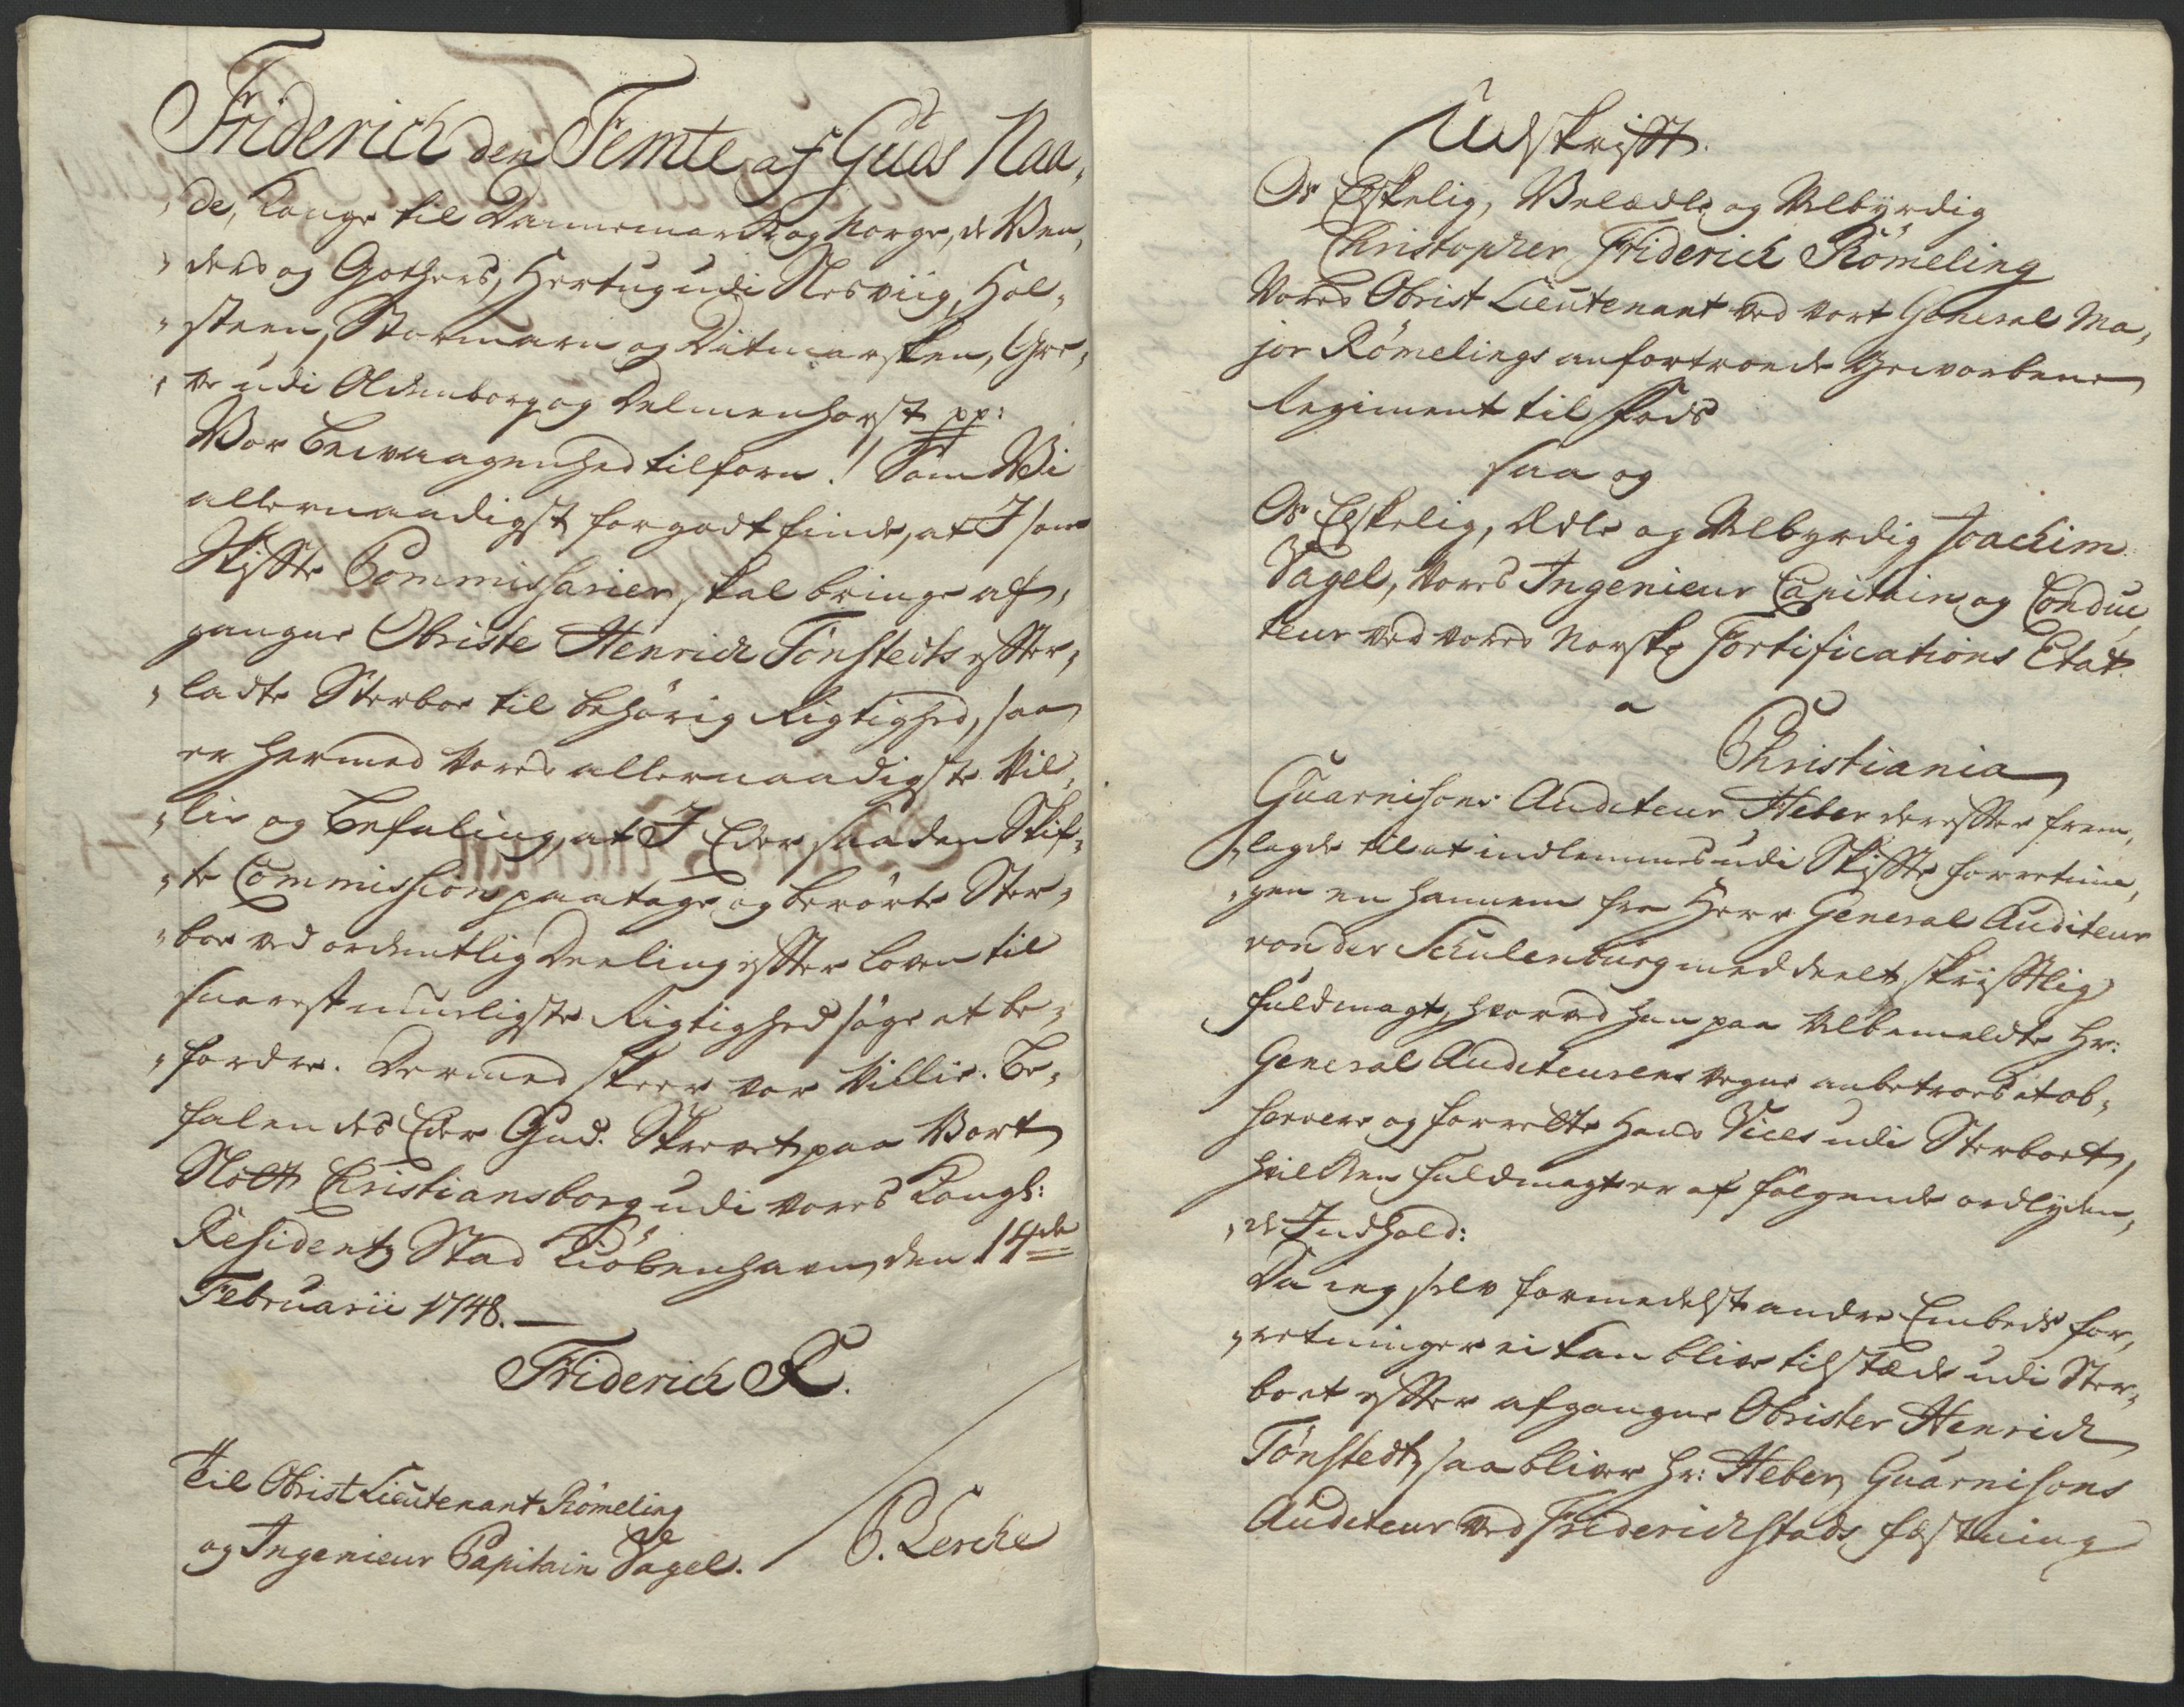 Friderich den Femte af Guds Naa,
,de, Konge til Dannemark og Norge, de Ven,
,ders og Gothers, Hertug udi Slesviig, Hol,
,steen, Stormarn og Ditmarsken, Gre,
,ve udi Oldenborg og Delmenhorst pp:
Vor bevaagenhed tilforn! Som Vi
allernaadigst forgodt finde, at I som
Skiffte Commissarier skal bringe af,
gangne Obriste Henrich Tønstedts effter,
,ladte Sterboe til behörig Rigtighed, saa
er hermed Vores allernaadigste Vil,
,lie og Befaling, at I Eder saadan Skif,
,te Commission paatage og berörte Ster,
,boe ved ordentlig Deeling effter Loven til
snarest muuligste Rigtighed söge at be,
,fordre. Dermed skeer vor Villie. Be,
falendes Eder Gud. Skrevet paa Vort
Slott Christiansborg udi vores Kongl:
Residentz Stad Kiöbenhavn, den 14de
Februarii 1748.
Friderich R.
Til Obrist Lieutenant Römeling
og Ingenieur Capitain Vagel.
P. Lerche
Udskrifft.
Os Elskelig, Velædle og Velbyrdig
Christopher Friderich Römeling
Vores Obrist Lieutenant ved vort General Ma,
jor Römelings anfortroede Gevorbene
Regiment til Fods
saa og
Os Elskelig, Ædle og Velbyrdig Joachim
Vagel, Vores Ingenieur Capitain og Conduc,
teur ved vores Norske Fortifications Etat.
a
Christiania
Guarnisons Auditeur Heber dereffter frem,
,lagde til at indlemmes udi Skiffte forretnin,
,gen en hannem fra Herr General Auditeur
von der Schulenburg meddeelt skrifftlig
fuldmagt, hvorved han paa Velbemeldte Hr:
General Auditeurens vegne anbetroes at ob,
servere og forrette hans Vices udi Sterboet,
hvilken fuldmagt er af fölgende ordlyden,
,de Indhold:
Da ieg selv formedelst andre Embeds for,
,retninger ei kan blive tilstæde udi Ster,
boet effter afgangne Obrister Henrich
Tönstedt, saa bliver Hr: Heber, Guarnisons
Auditeur ved Friderichstads Fæstning